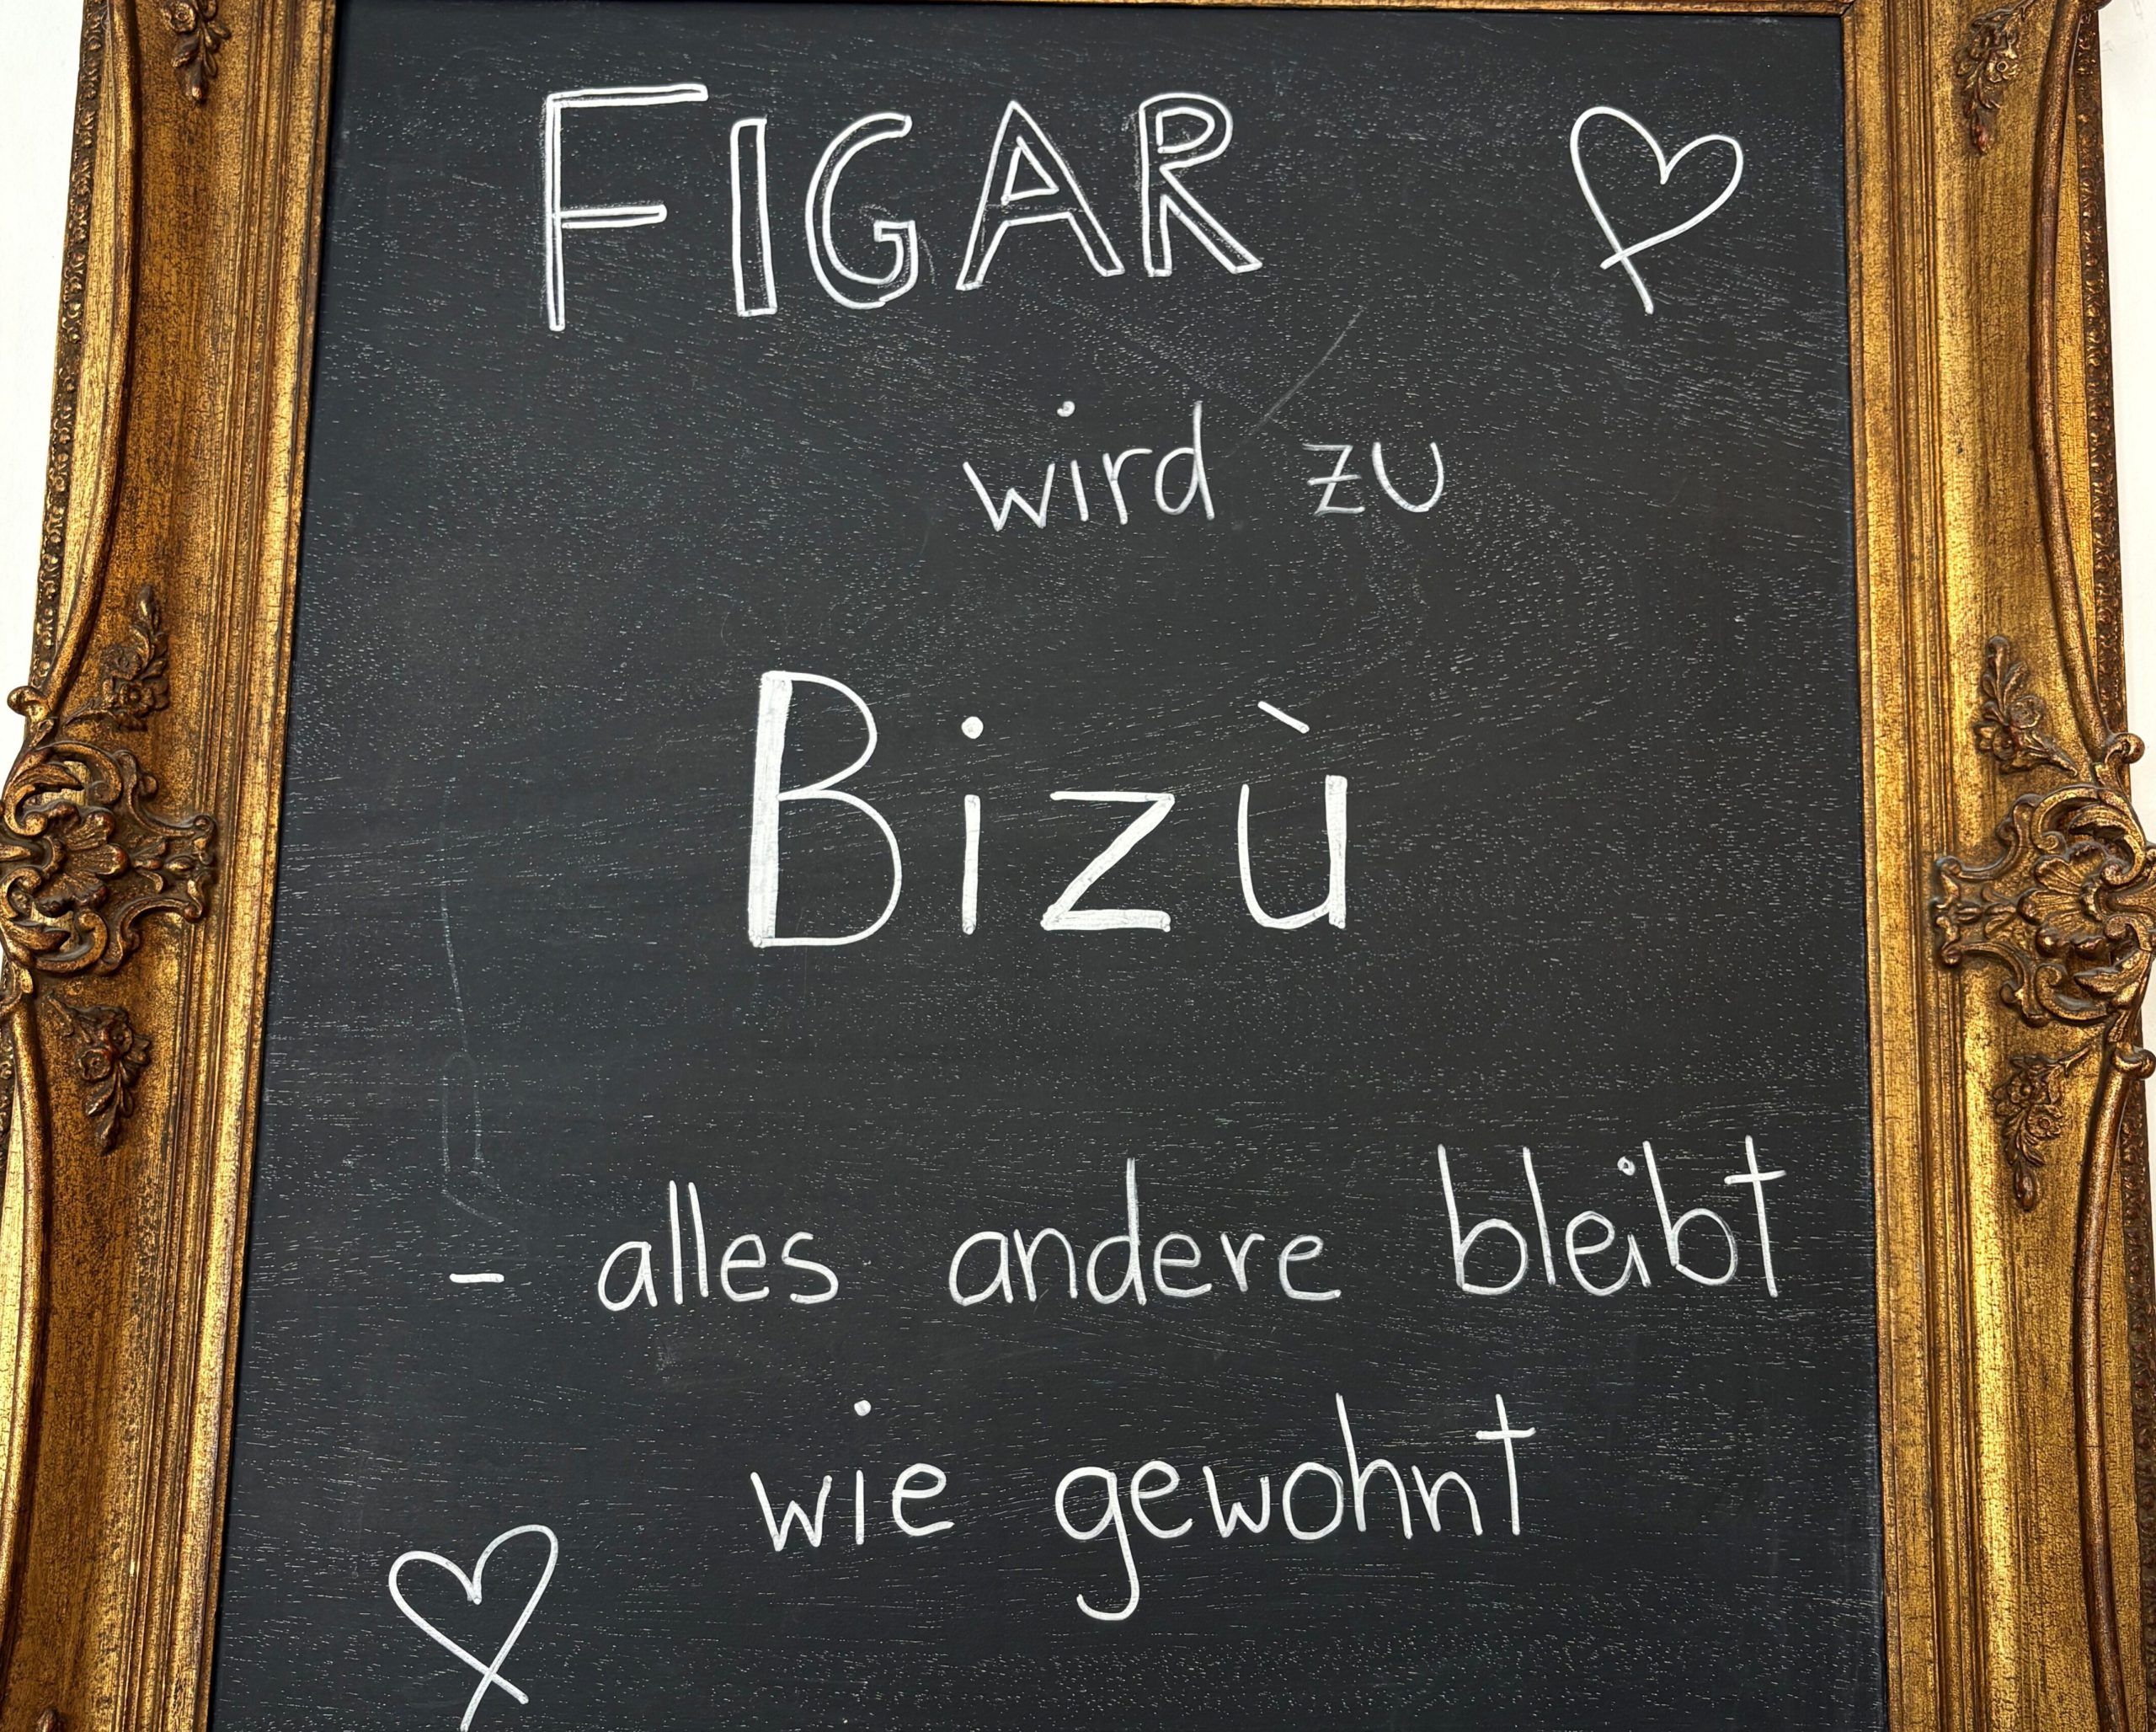 FIGAR
wird zu
Bizù
- alles andere bleibt
wie gewohnt